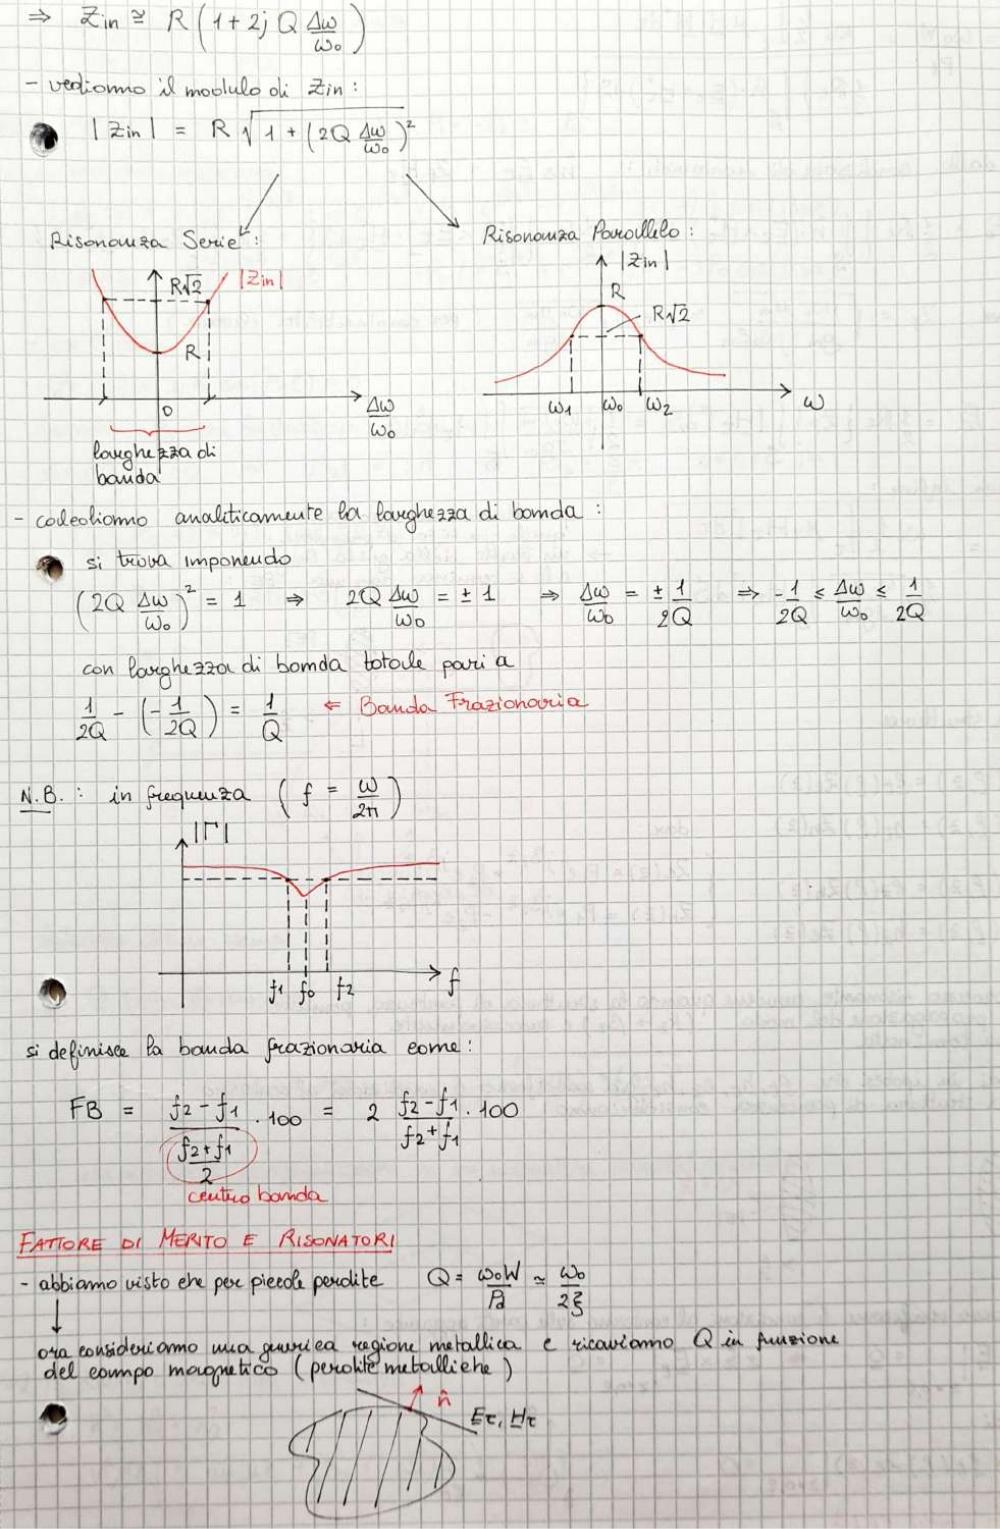 ⇒ Zin ≅ R (1 + 2j Q Δω/ω₀)
- vediamo il modulo di Zin :
|Zin| = R √(1 + (2Q Δω/ω₀)²)
Risonanza Serie :
Risonanza Parallelo :
R√2 |Zin|
R
0
Δω/ω₀
larghezza di
banda
|Zin|
R
R√2
ω₁ ω₀ ω₂ ω
- calcoliamo analiticamente la larghezza di banda :
si trova imponendo
(2Q Δω/ω₀)² = 1 ⇒ 2Q Δω/ω₀ = ± 1 ⇒ Δω/ω₀ = ± 1/2Q ⇒ -1/2Q ≤ Δω/ω₀ ≤ 1/2Q
con larghezza di banda totale pari a
1/2Q - (-1/2Q) = 1/Q ⇐ Banda Frazionaria
N.B. : in frequenza (f = ω/2π)
|Γ|
f1 f0 f2 f
si definisce la banda frazionaria come :
FB = (f2 - f1)/((f2 + f1)/2) · 100 = 2 (f2 - f1)/(f2 + f1) · 100
centro banda
FATTORE DI MERITO E RISONATORI
- abbiamo visto che per piccole perdite Q = ω₀W/Pd ≃ ω₀/2ξ
↓
ora consideriamo una generica regione metallica e ricaviamo Q in funzione
del campo magnetico (perdite metalliche)
n̂
Eτ, Hτ